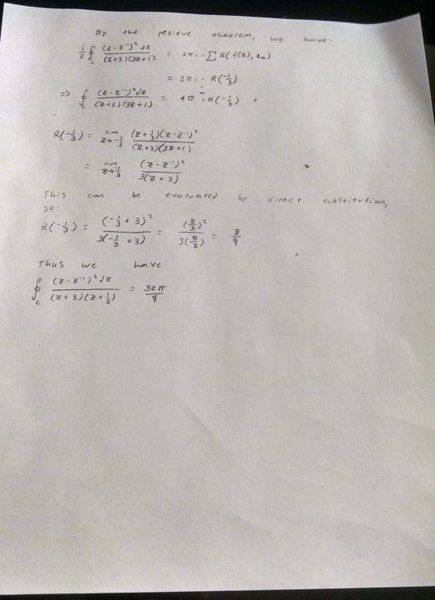 By the residue theorem, we have
i/2 ∮_C (z-z⁻¹)² dz / (z+3)(3z+1) = 2πi · ∑ R(f(z), zₙ)
= 2πi · R(-1/3)
⇒ ∮_C (z-z⁻¹)² dz / (z+3)(3z+1) = 4π · R(-1/3),
R(-1/3) = lim z→-1/3 (z+1/3)(z-z⁻¹)² / (z+3)(3z+1)
= lim z→-1/3 (z-z⁻¹)² / 3(z+3)
This can be evaluated by direct substitution,
so
R(-1/3) = (-1/3 + 3)² / 3(-1/3 + 3) = (8/3)² / 3(8/3) = 8/9.
Thus we have
∮_C (z-z⁻¹)² dz / (z+3)(z+1/3) = 32π/9